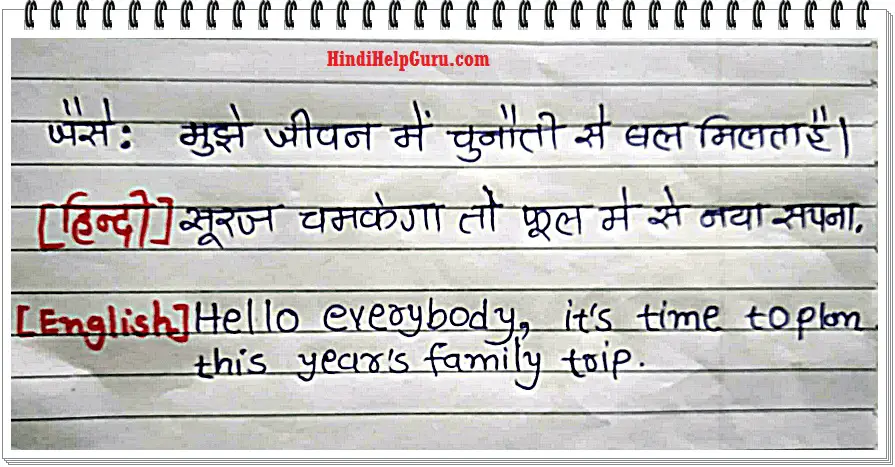 HindiHelpGuru.com
जैसे: मुझे जीवन में चुनौती से बल मिलता है।
[हिन्दी] सूरज चमकेगा तो फूल मे से नया सपना.
[English] Hello everybody, it's time to plan
this year's family trip.